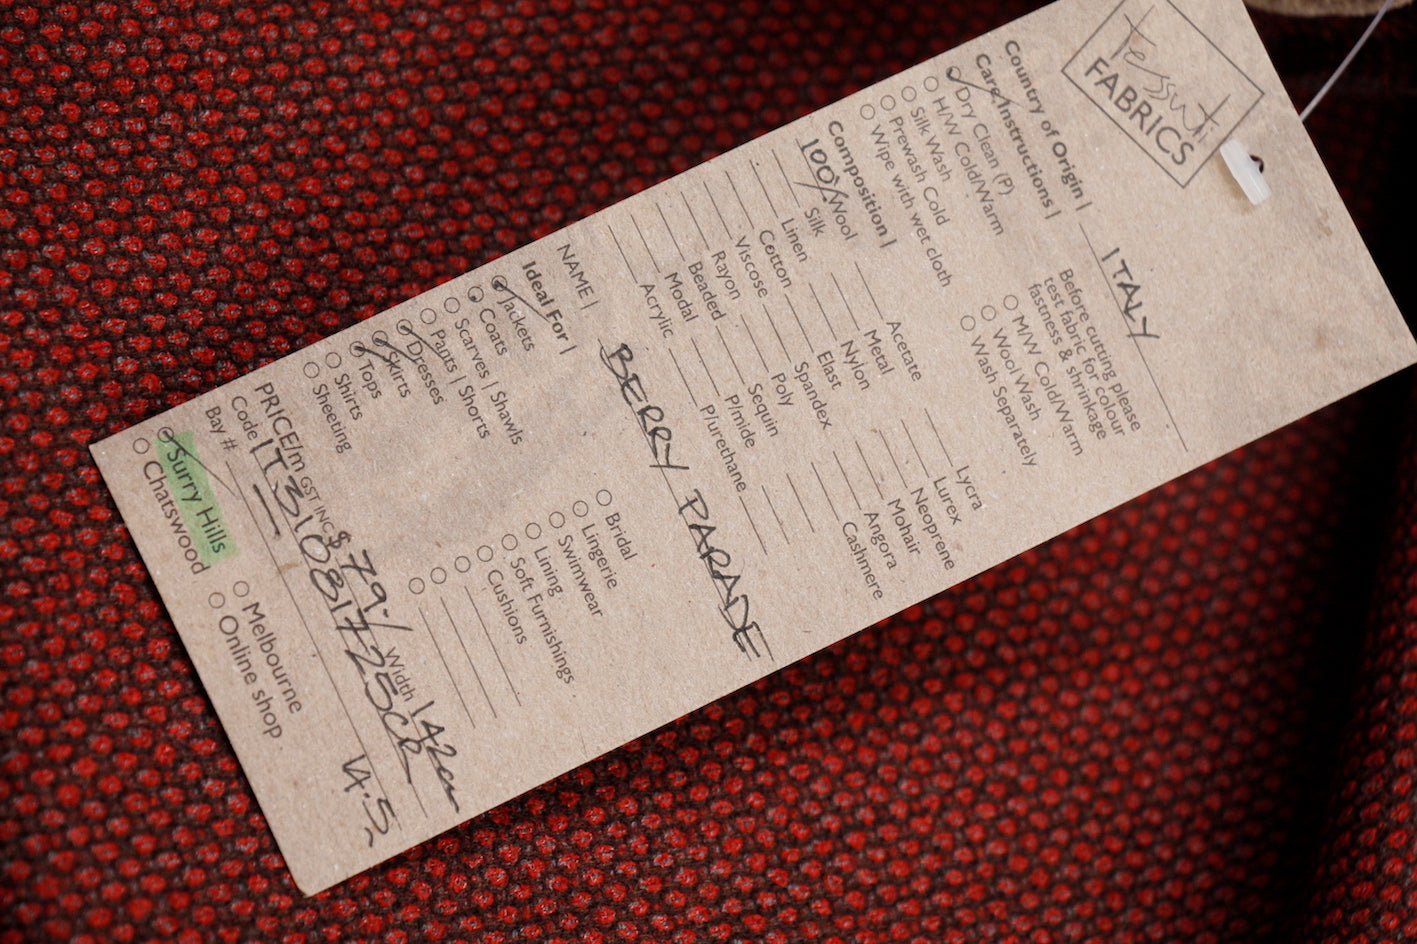 tessuti
FABRICS
Country of Origin | ITALY
Care Instructions |
Before cutting please
test fabric for colour
fastness & shrinkage
Dry Clean (P)
H/W Cold/Warm
Silk Wash
Prewash Cold
Wipe with wet cloth
M/W Cold/Warm
Wool Wash
Wash Separately
Composition |
100% Wool
Silk
Linen
Cotton
Viscose
Rayon
Beaded
Modal
Acrylic
Acetate
Metal
Nylon
Elast
Spandex
Poly
Sequin
P/mide
P/urethane
Lycra
Lurex
Neoprene
Mohair
Angora
Cashmere
NAME | BERRY PARADE
Ideal For |
Jackets
Coats
Scarves | Shawls
Pants | Shorts
Dresses
Skirts
Tops
Shirts
Sheeting
Bridal
Lingerie
Swimwear
Lining
Soft Furnishings
Cushions
PRICE/m GST INC. $ 79./ Width 142cm
Code IT31081725CR
Bay # 14.5,
Surry Hills
Chatswood
Melbourne
Online shop